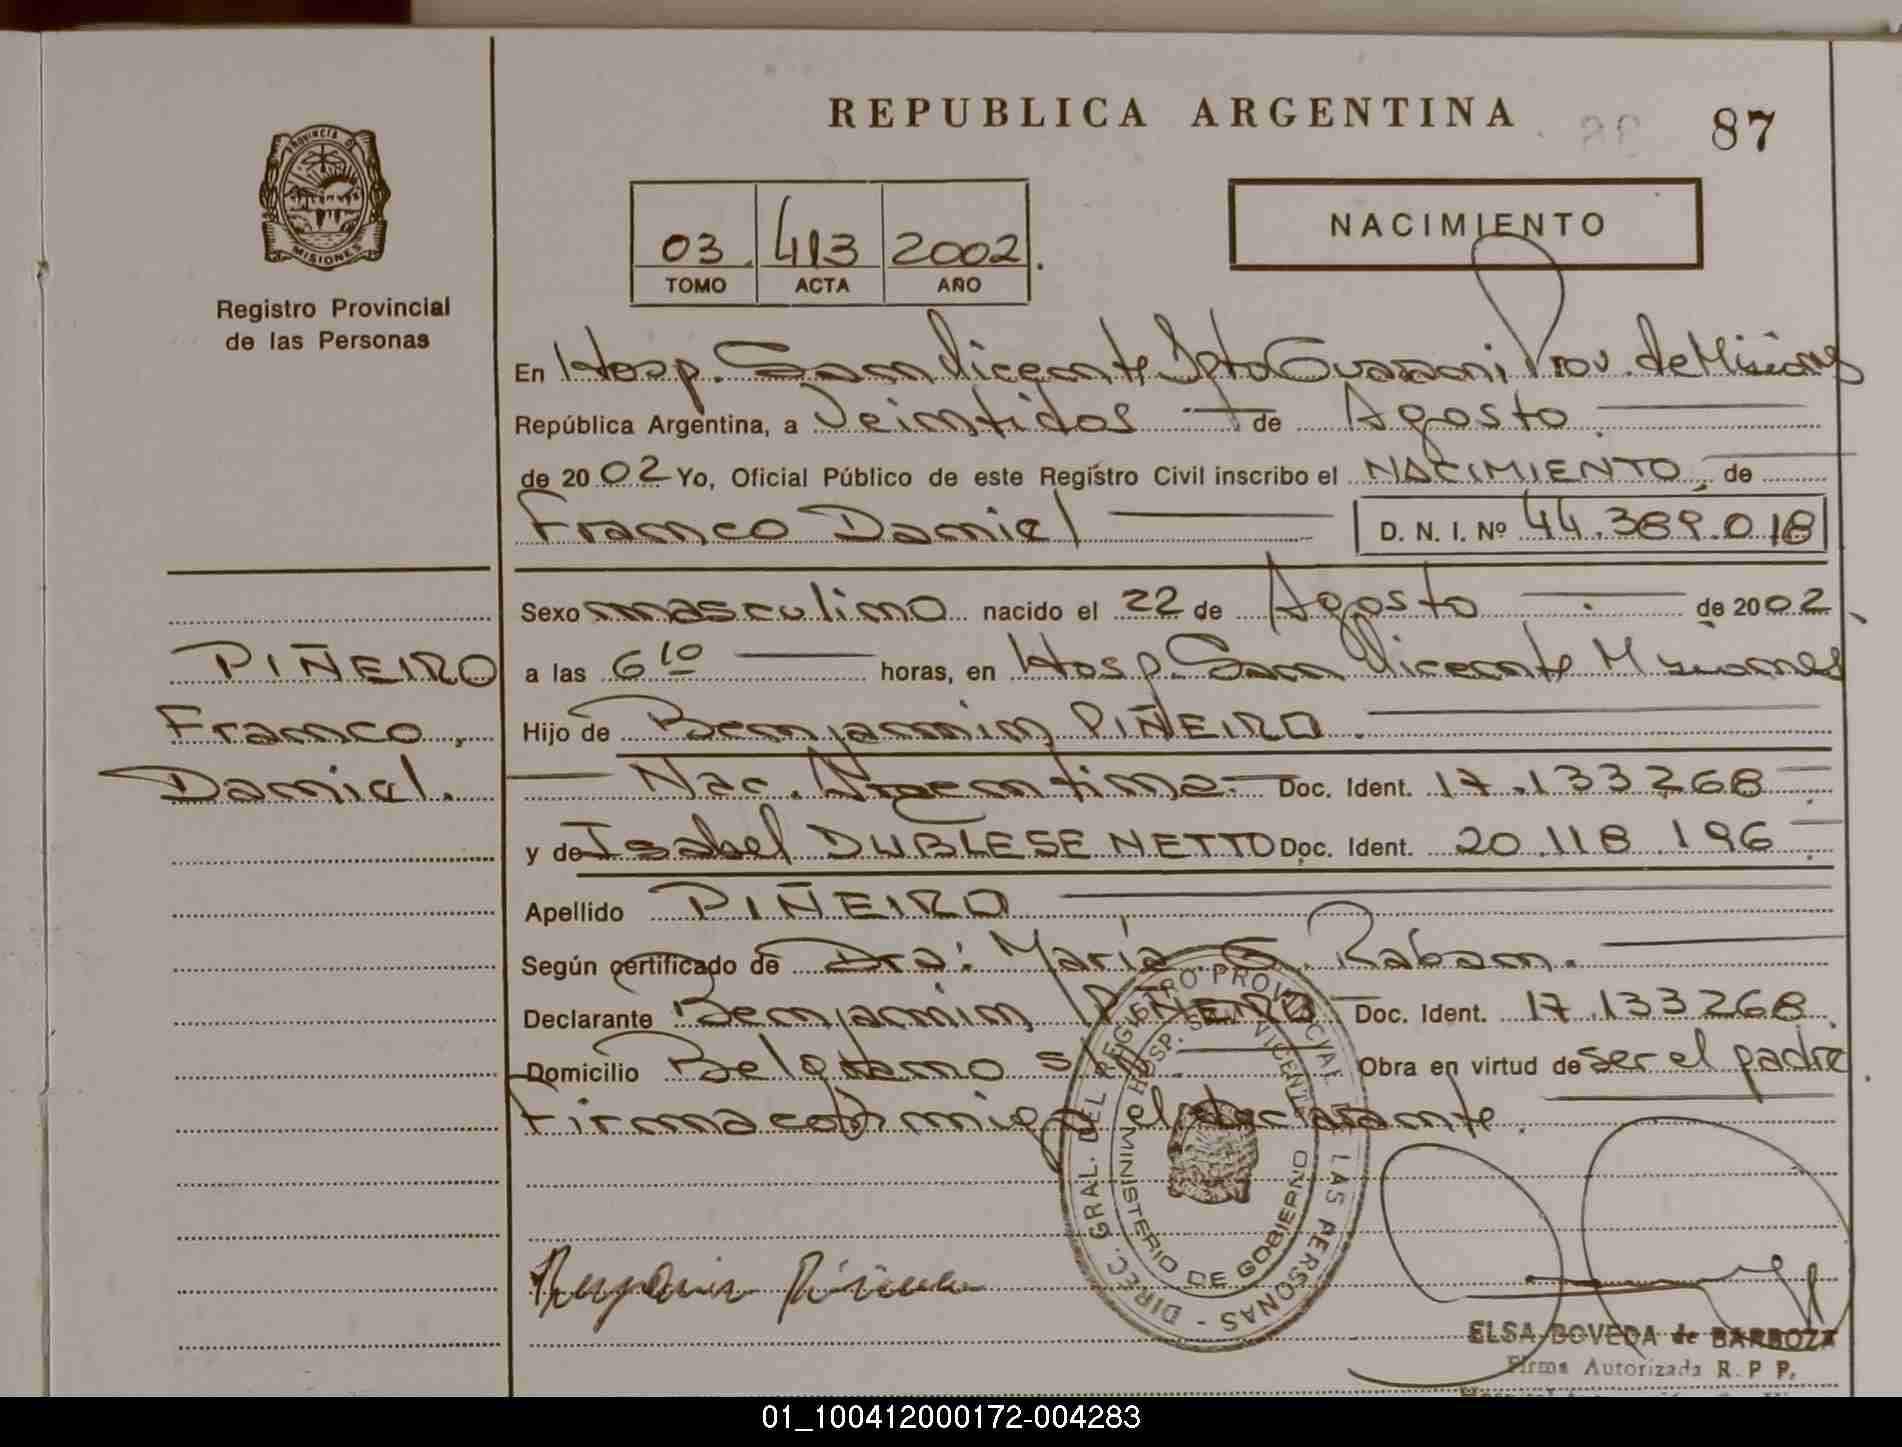 REPUBLICA ARGENTINA
87
PROVINCIA DE
MISIONES
Registro Provincial
de las Personas
03 413 2002
TOMO ACTA AÑO
NACIMIENTO
En Hosp. San Vicente Dpto Guarani Prov. de Misiones
República Argentina, a Veintidos de Agosto
de 2002 Yo, Oficial Público de este Registro Civil inscribo el NACIMIENTO de
Franco Daniel D. N. I. Nº 44.389.018
Sexo masculino nacido el 22 de Agosto de 2002
a las 6 10 horas, en Hosp. San Vicente Misiones
Hijo de Benjamin PIÑEIRO.
Nac. Argentina Doc. Ident. 17.133268
y de Isabel DUBLESE NETTO Doc. Ident. 20.118.196
Apellido PIÑEIRO
Según certificado de Dra: María G. Raban.
Declarante Benjamin PIÑEIRO Doc. Ident. 17.133268
Domicilio Belgrano s/n. Obra en virtud de ser el padre
Firma conmigo el declarante.
PIÑEIRO
Franco,
Daniel.
DIREC. GRAL. DEL REGISTRO PROVINCIAL DE LAS PERSONAS -
HOSP. SAN VICENTE
MINISTERIO DE GOBIERNO
Benjamin Piñeiro
ELSA BOVEDA de BARBOZA
Firma Autorizada R. P. P.
01_100412000172-004283